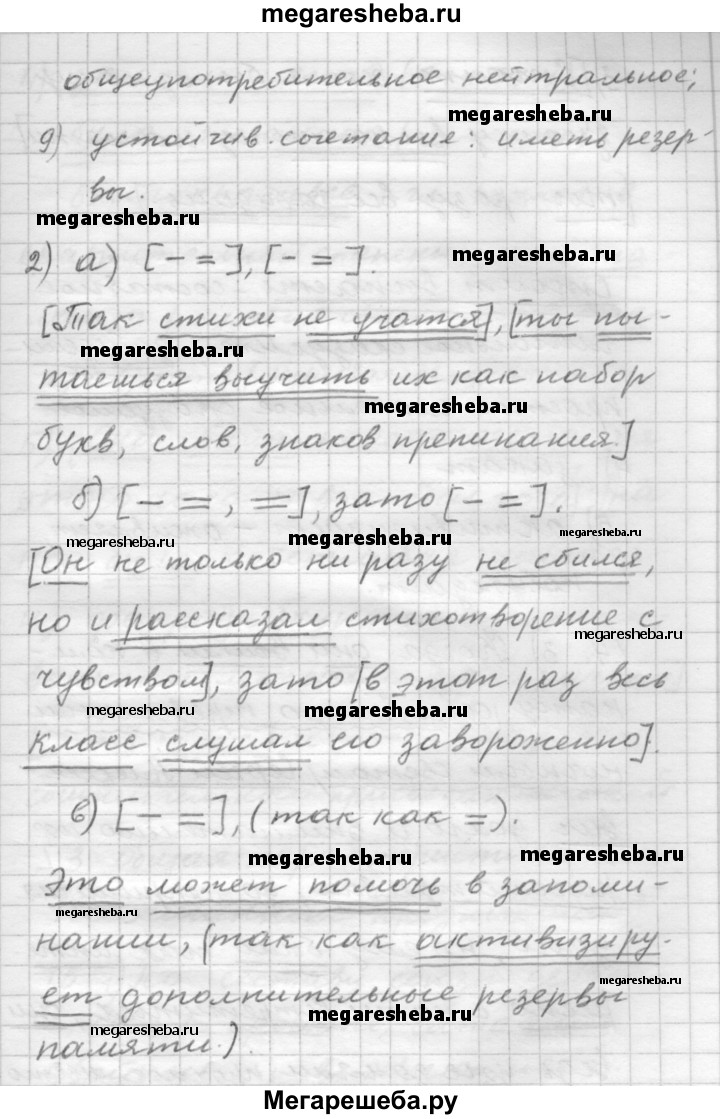 megaresheba.ru
общеупотребительное нейтральное;
megaresheba.ru
9) устойчив. сочетание: иметь резер-
вы.
megaresheba.ru
2) а) [- =], [- =].
megaresheba.ru
[Так стихи не учатся], [ты пы-
megaresheba.ru
таешься выучить их как набор
megaresheba.ru
букв, слов, знаков препинания.]
б) [- =, =], зато [- =].
megaresheba.ru
megaresheba.ru
megaresheba.ru
[Он не только ни разу не сбился,
но и рассказал стихотворение с
megaresheba.ru
чувством], зато [в этот раз весь
megaresheba.ru
megaresheba.ru
класс слушал его завороженно].
в) [- =], (так как =).
megaresheba.ru
megaresheba.ru
Это может помочь в запоми-
megaresheba.ru
нании, (так как активизиру-
megaresheba.ru
ет дополнительные резервы
megaresheba.ru
megaresheba.ru
памяти.)
Мегарешеба.ру